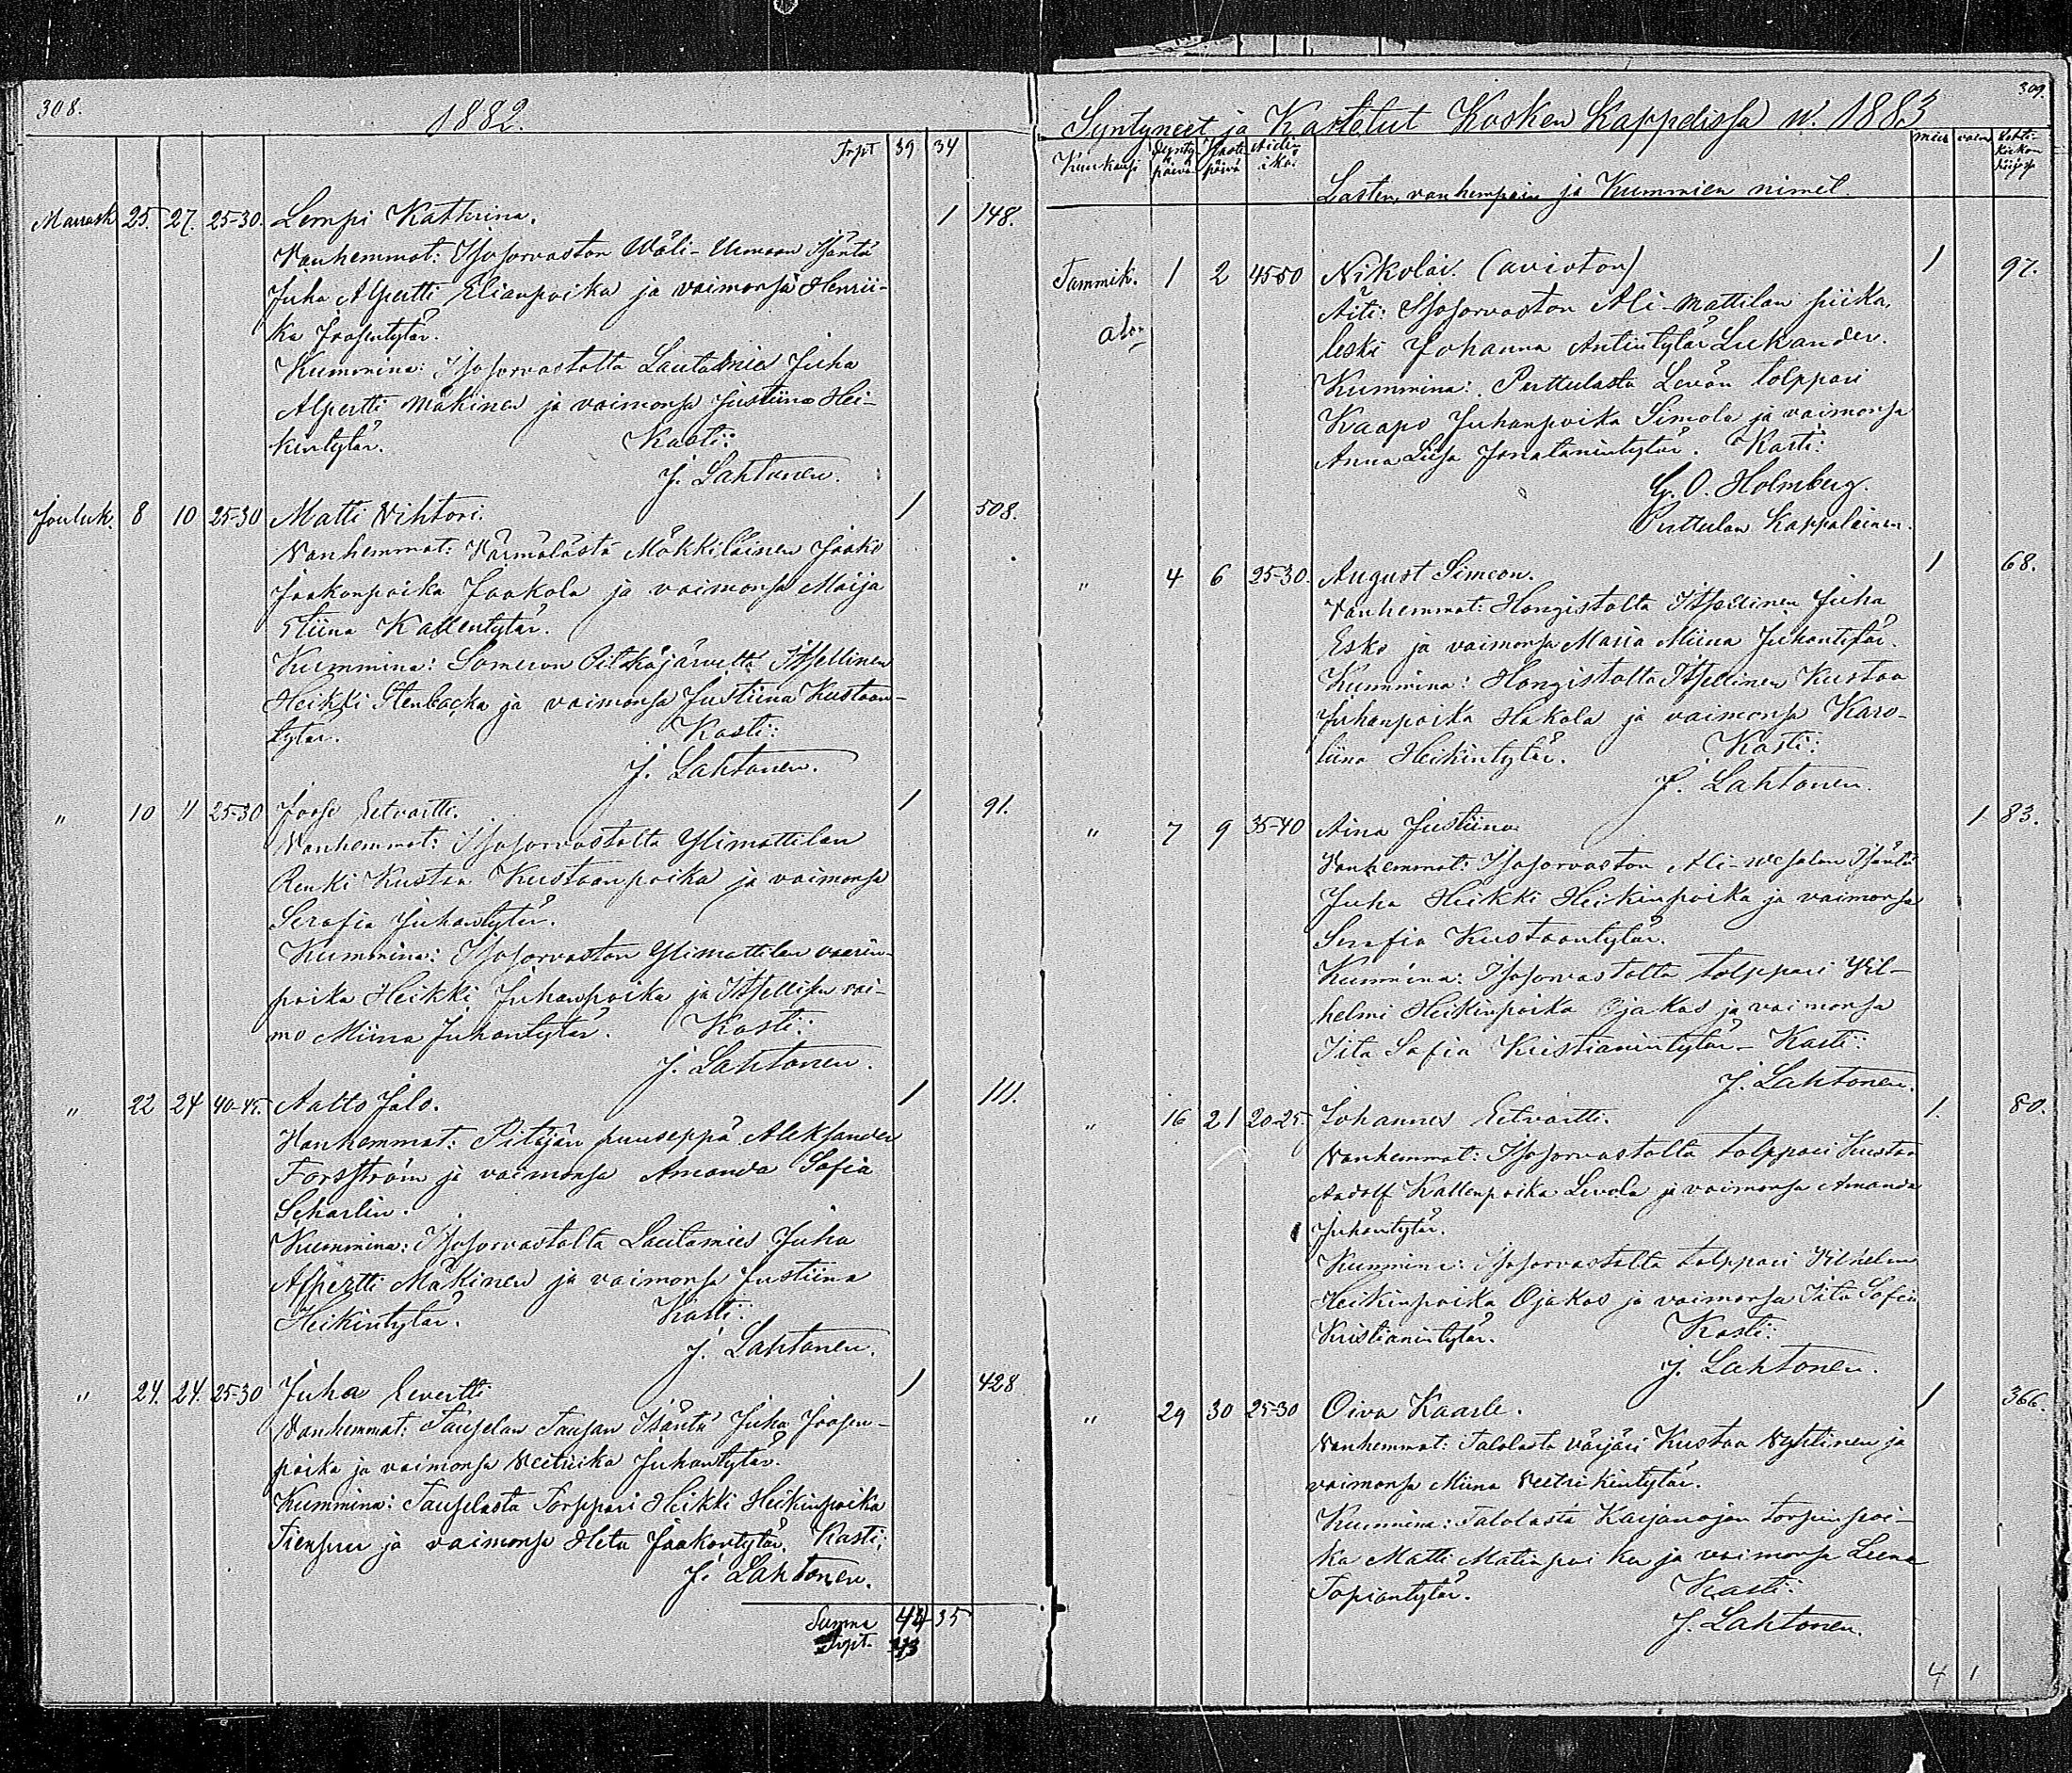 308.
1882.
Trpt 39 34
Marrask 25. 27. 25-30. Lempi Kathrina. 1 148.
Vanhemmat: Isosorvaston Wäli-Uusmaan Isäntä
Juha Alpertti Elianpoika ja vaimonsa Henrii-
ka Joosentytär.
Kummina: Isosorvastolta Lautamies Juha
Alpertti Mäkinen ja vaimonsa Justiina Hei-
kintytär. Kasti:
J. Lahtonen.
Jouluk. 8 10 25-30 Matti Vihtori. 1 508.
Vanhemmat: Värmälästä Mökkiläinen Jaako
Jaakonpoika Jaakola ja vaimonsa Maija
Stiina Kallentytär.
Kummina: Someron Pitkäjärveltä Itsellinen
Heikki Stenbacka ja vaimonsa Justiina Kustaan-
tytär. Kasti:
J. Lahtonen.
" 10 11 25-30 Joose Eetvartti. 1 91.
Vanhemmat: Isosorvastolta Ylimattilan
Renki Kustaa Kustaanpoika ja vaimonsa
Serafia Juhantytär.
Kummina: Isosorvaston Ylimattilan vaarin-
poika Heikki Juhanpoika ja Itsellisen vai-
mo Miina Juhantytär. Kasti:
J. Lahtonen.
" 22 24 40-45. Aatto Jalo. 1 111.
Vanhemmat: Pitäjän puuseppä Aleksander
Forsström ja vaimonsa Amanda Sofia
Scharlin.
Kummina: Isosorvastolta Lautamies Juha
Alpertti Mäkinen ja vaimonsa Justiina
Heikintytär. Kasti:
J. Lahtonen.
" 24. 24. 25-30 Juha Evertti 1 428
Vanhemmat: Tauselan Tausan Isäntä Juha Joosen-
poika ja vaimonsa Veitriika Juhantytär.
Kummina: Tauselasta Torppari Heikki Heikinpoika
Tiensuu ja vaimonsa Heta Jaakontytär. Kasti:
J. Lahtonen.
Summa 44 35
Trpt. 43
309.
Syntyneet ja Kastetut Kosken Kappelissa w. 1883
Kuukausi Synty päivä Kaste päivä Äidin ikä. Lasten, vanhempain ja Kummien nimet. mies vaim Lasti- kirkon kirjassa
Tammik. 1 2 45-50 Nikolai. (avioton) 1 97.
Äiti: Isosorvaston Ali-Mattilan piika,
leski Johanna Antintytär Lukander.
Kummina: Perttulasta Levän tolppari
Kaapo Juhanpoika Simola ja vaimonsa
Anna Liisa Jonatanintytär. Kasti:
G. O. Holmberg.
Perttulan Kappalainen.
" 4 6 25-30. August Simeon. 1 68.
Vanhemmat: Hongistolta Itsellinen Juha
Esko ja vaimonsa Maria Miina Juhantytär.
Kummina: Hongistolta Itsellinen Kustaa
Juhanpoika Hakala ja vaimonsa Karo-
liina Heikintytär. Kasti:
J. Lahtonen.
" 7 9 35-40 Aina Justiina 1 83.
Vanhemmat: Isosorvaston Ali-wesalan Isäntä
Juha Heikki Heikinpoika ja vaimonsa
Serafia Kustaantytär.
Kummina: Isosorvastolta tolppari Vil-
helmi Heikinpoika Ojakas ja vaimonsa
Iita Sofia Kristianintytär. Kasti:
J. Lahtonen.
" 16 21 20-25. Johannes Eetvartti. 1. 80.
Vanhemmat: Isosorvastolta tolppari Kustaa
Aadolf Kallenpoika Levola ja vaimonsa Amanda
Juhantytär.
Kummina: Isosorvastolta tolppari Vilhelmi
Heikinpoika Ojakas ja vaimonsa Iita Sofia
Kristianintytär. Kasti:
J. Lahtonen.
" 29 30 25-30 Oiva Kaarle. 1 366.
Vanhemmat: Talolasta värjäri Kustaa Vyhtinen ja
vaimonsa Miina Veetrikintytär.
Kummina: Talolasta Karjanojan torpin poi-
ka Matti Matinpoika ja vaimonsa Leena
Tapiantytär. Kasti:
J. Lahtonen.
4 1